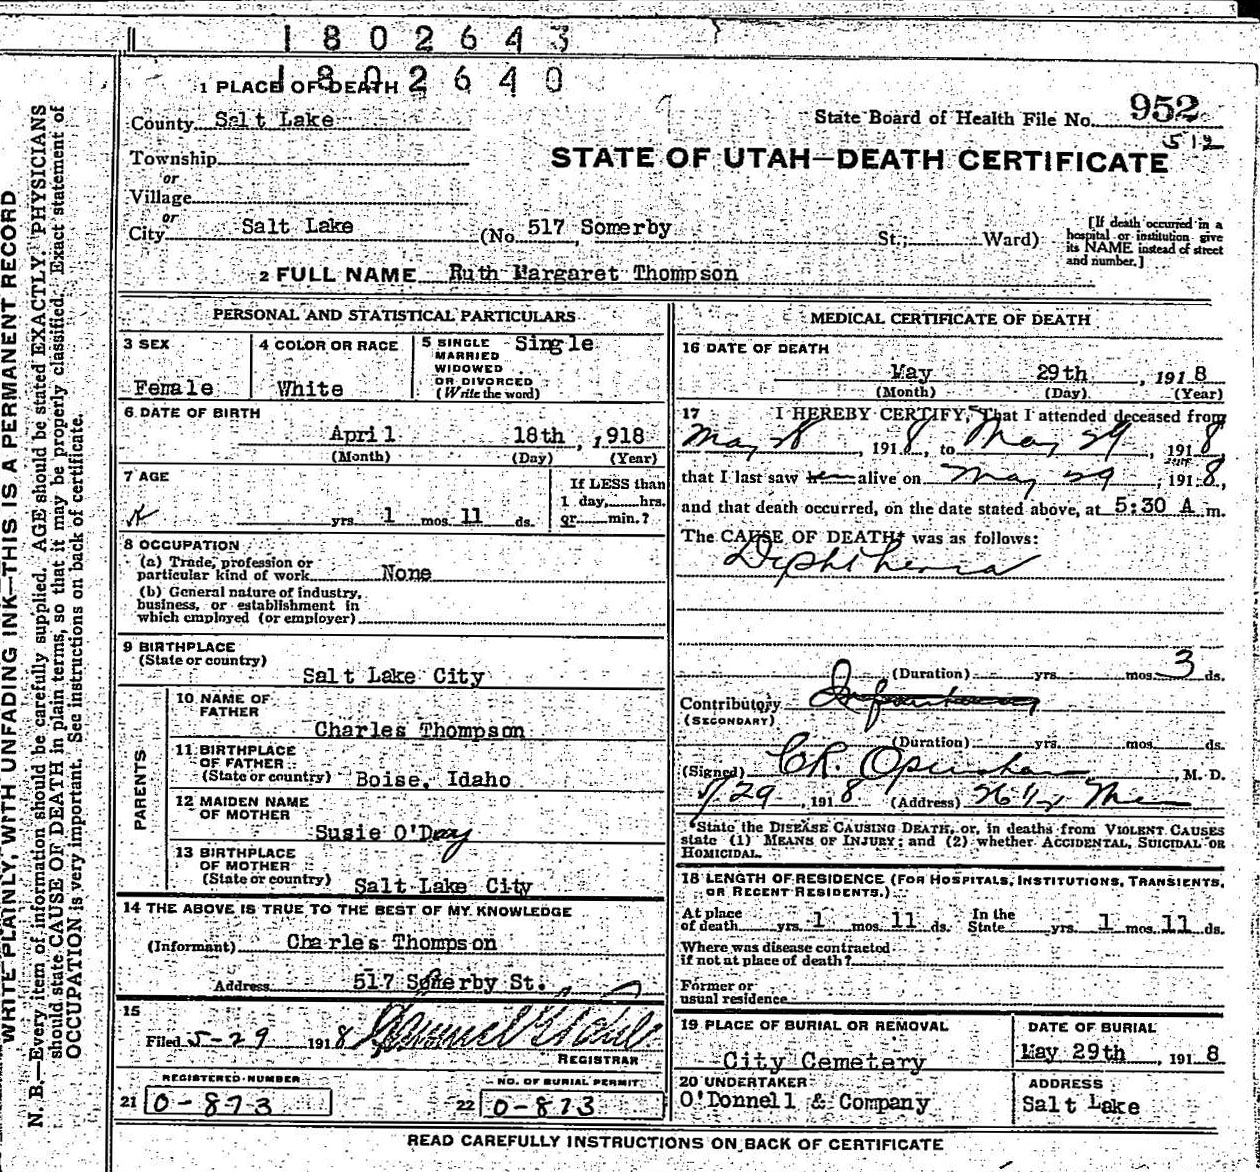 1802643
1802640
1 PLACE OF DEATH
County Salt Lake
State Board of Health File No. 952
512
Township
or
Village
or
STATE OF UTAH—DEATH CERTIFICATE
City Salt Lake (No. 517 Somerby St.; Ward)
[If death occurred in a
hospital or institution give
its NAME instead of street
and number.]
2 FULL NAME Ruth Margaret Thompson
PERSONAL AND STATISTICAL PARTICULARS
3 SEX
Female
4 COLOR OR RACE
White
5 SINGLE
MARRIED
WIDOWED
OR DIVORCED
(Write the word)
Single
6 DATE OF BIRTH
April 18th, 1918
(Month) (Day) (Year)
7 AGE
yrs. 1 mos. 11 ds.
If LESS than
1 day, hrs.
or min.?
8 OCCUPATION
(a) Trade, profession or
particular kind of work None
(b) General nature of industry,
business, or establishment in
which employed (or employer)
9 BIRTHPLACE
(State or country)
Salt Lake City
PARENTS
10 NAME OF
FATHER
Charles Thompson
11 BIRTHPLACE
OF FATHER
(State or country) Boise, Idaho
12 MAIDEN NAME
OF MOTHER
Susie O'Day
13 BIRTHPLACE
OF MOTHER
(State or country) Salt Lake City
14 THE ABOVE IS TRUE TO THE BEST OF MY KNOWLEDGE
(Informant) Charles Thompson
Address 517 Somerby St.
15
Filed 5-29 1918
REGISTRAR
REGISTERED NUMBER
21 0-873
NO. OF BURIAL PERMIT
22 0-873
MEDICAL CERTIFICATE OF DEATH
16 DATE OF DEATH
May 29th, 1918
(Month) (Day) (Year)
17 I HEREBY CERTIFY, That I attended deceased from
May 28, 1918, to May 29, 1918,
that I last saw alive on May 29, 1918,
and that death occurred, on the date stated above, at 5:30 A m.
The CAUSE OF DEATH* was as follows:
Diphtheria
(Duration) yrs. mos. 3 ds.
Contributory
(SECONDARY)
(Duration) yrs. mos. ds.
(Signed) C.R. Openshaw, M. D.
5/29, 1918 (Address)
*State the DISEASE CAUSING DEATH, or, in deaths from VIOLENT CAUSES
state (1) MEANS OF INJURY; and (2) whether ACCIDENTAL, SUICIDAL OR
HOMICIDAL.
18 LENGTH OF RESIDENCE (FOR HOSPITALS, INSTITUTIONS, TRANSIENTS,
OR RECENT RESIDENTS.)
At place
of death yrs. 1 mos. 11 ds.
In the
State yrs. 1 mos. 11 ds.
Where was disease contracted
if not at place of death?
Former or
usual residence
19 PLACE OF BURIAL OR REMOVAL
City Cemetery
DATE OF BURIAL
May 29th, 1918
20 UNDERTAKER
O'Donnell & Company
ADDRESS
Salt Lake
READ CAREFULLY INSTRUCTIONS ON BACK OF CERTIFICATE
WRITE PLAINLY, WITH UNFADING INK—THIS IS A PERMANENT RECORD
N. B.—Every item of information should be carefully supplied. AGE should be stated EXACTLY. PHYSICIANS
should state CAUSE OF DEATH in plain terms, so that it may be properly classified. Exact statement of
OCCUPATION is very important. See instructions on back of certificate.